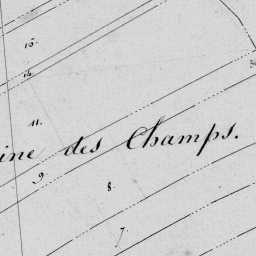 15.
11.
ine des Champs.
9
8.
7